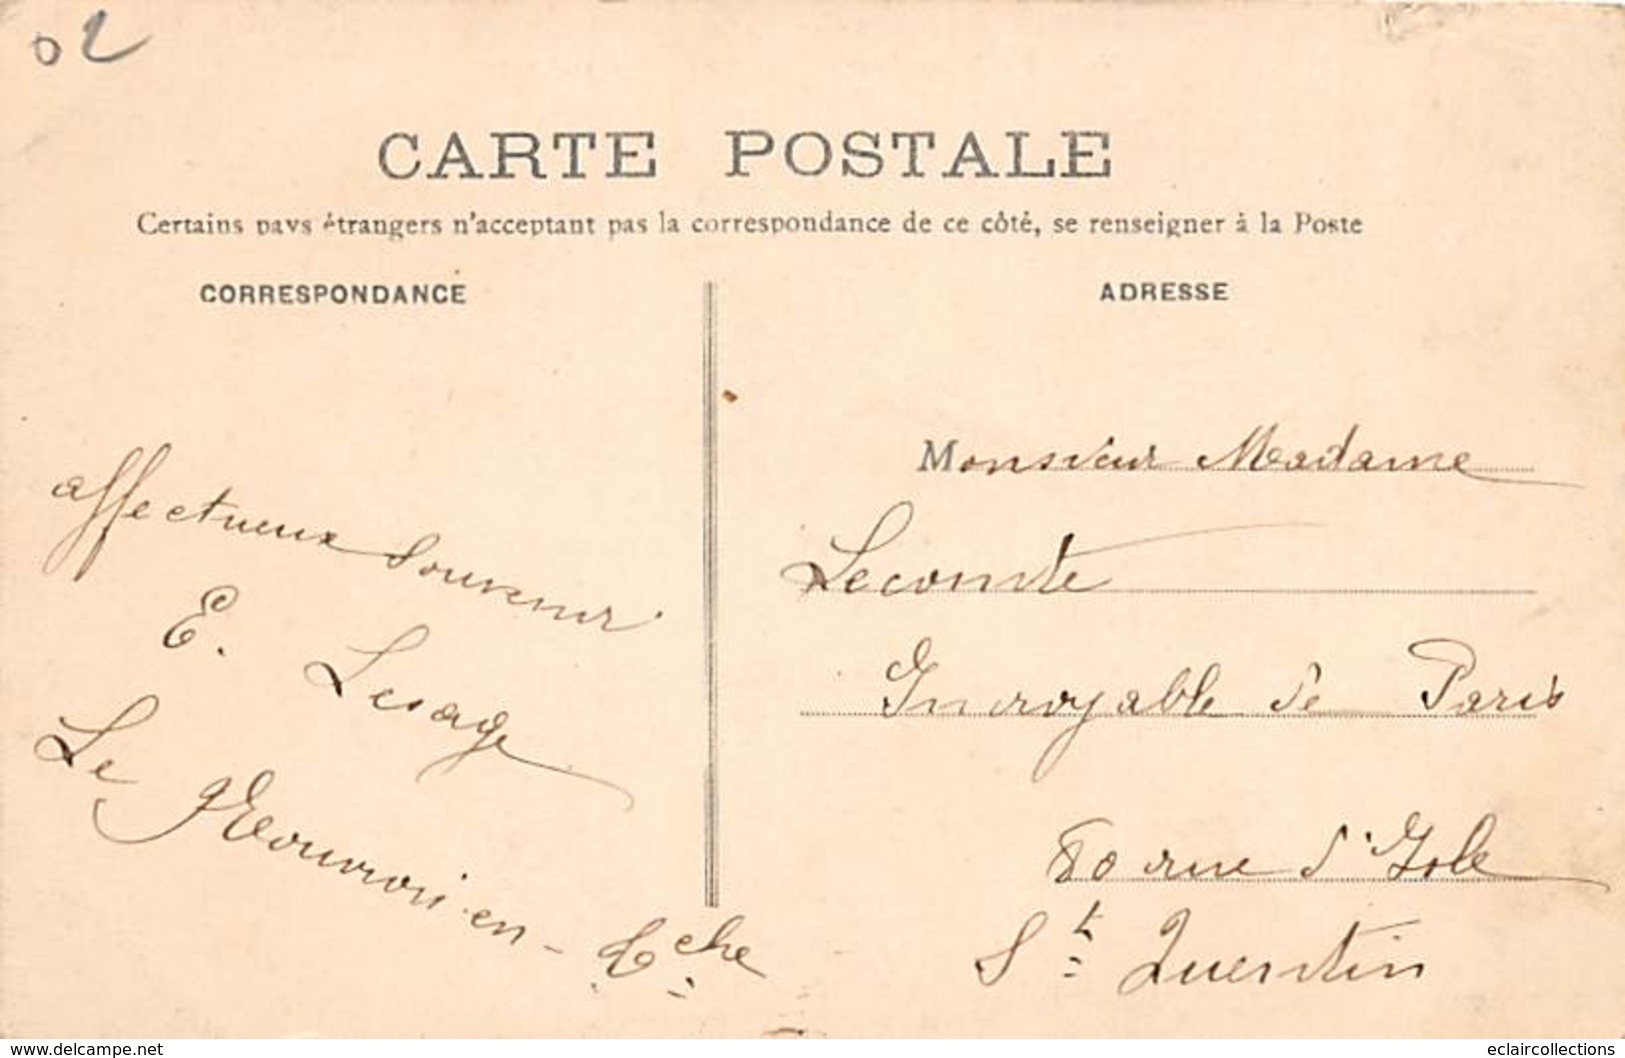 02
CARTE POSTALE
Certains pays étrangers n'acceptant pas la correspondance de ce côté, se renseigner à la Poste
CORRESPONDANCE
affectueux souvenir
E. Lesage
Le en-
ADRESSE
Monsieur Madame
Lecomte
Incroyable de Paris
80 rue d'Isle
St Quentin
www.delcampe.net
eclaircollections